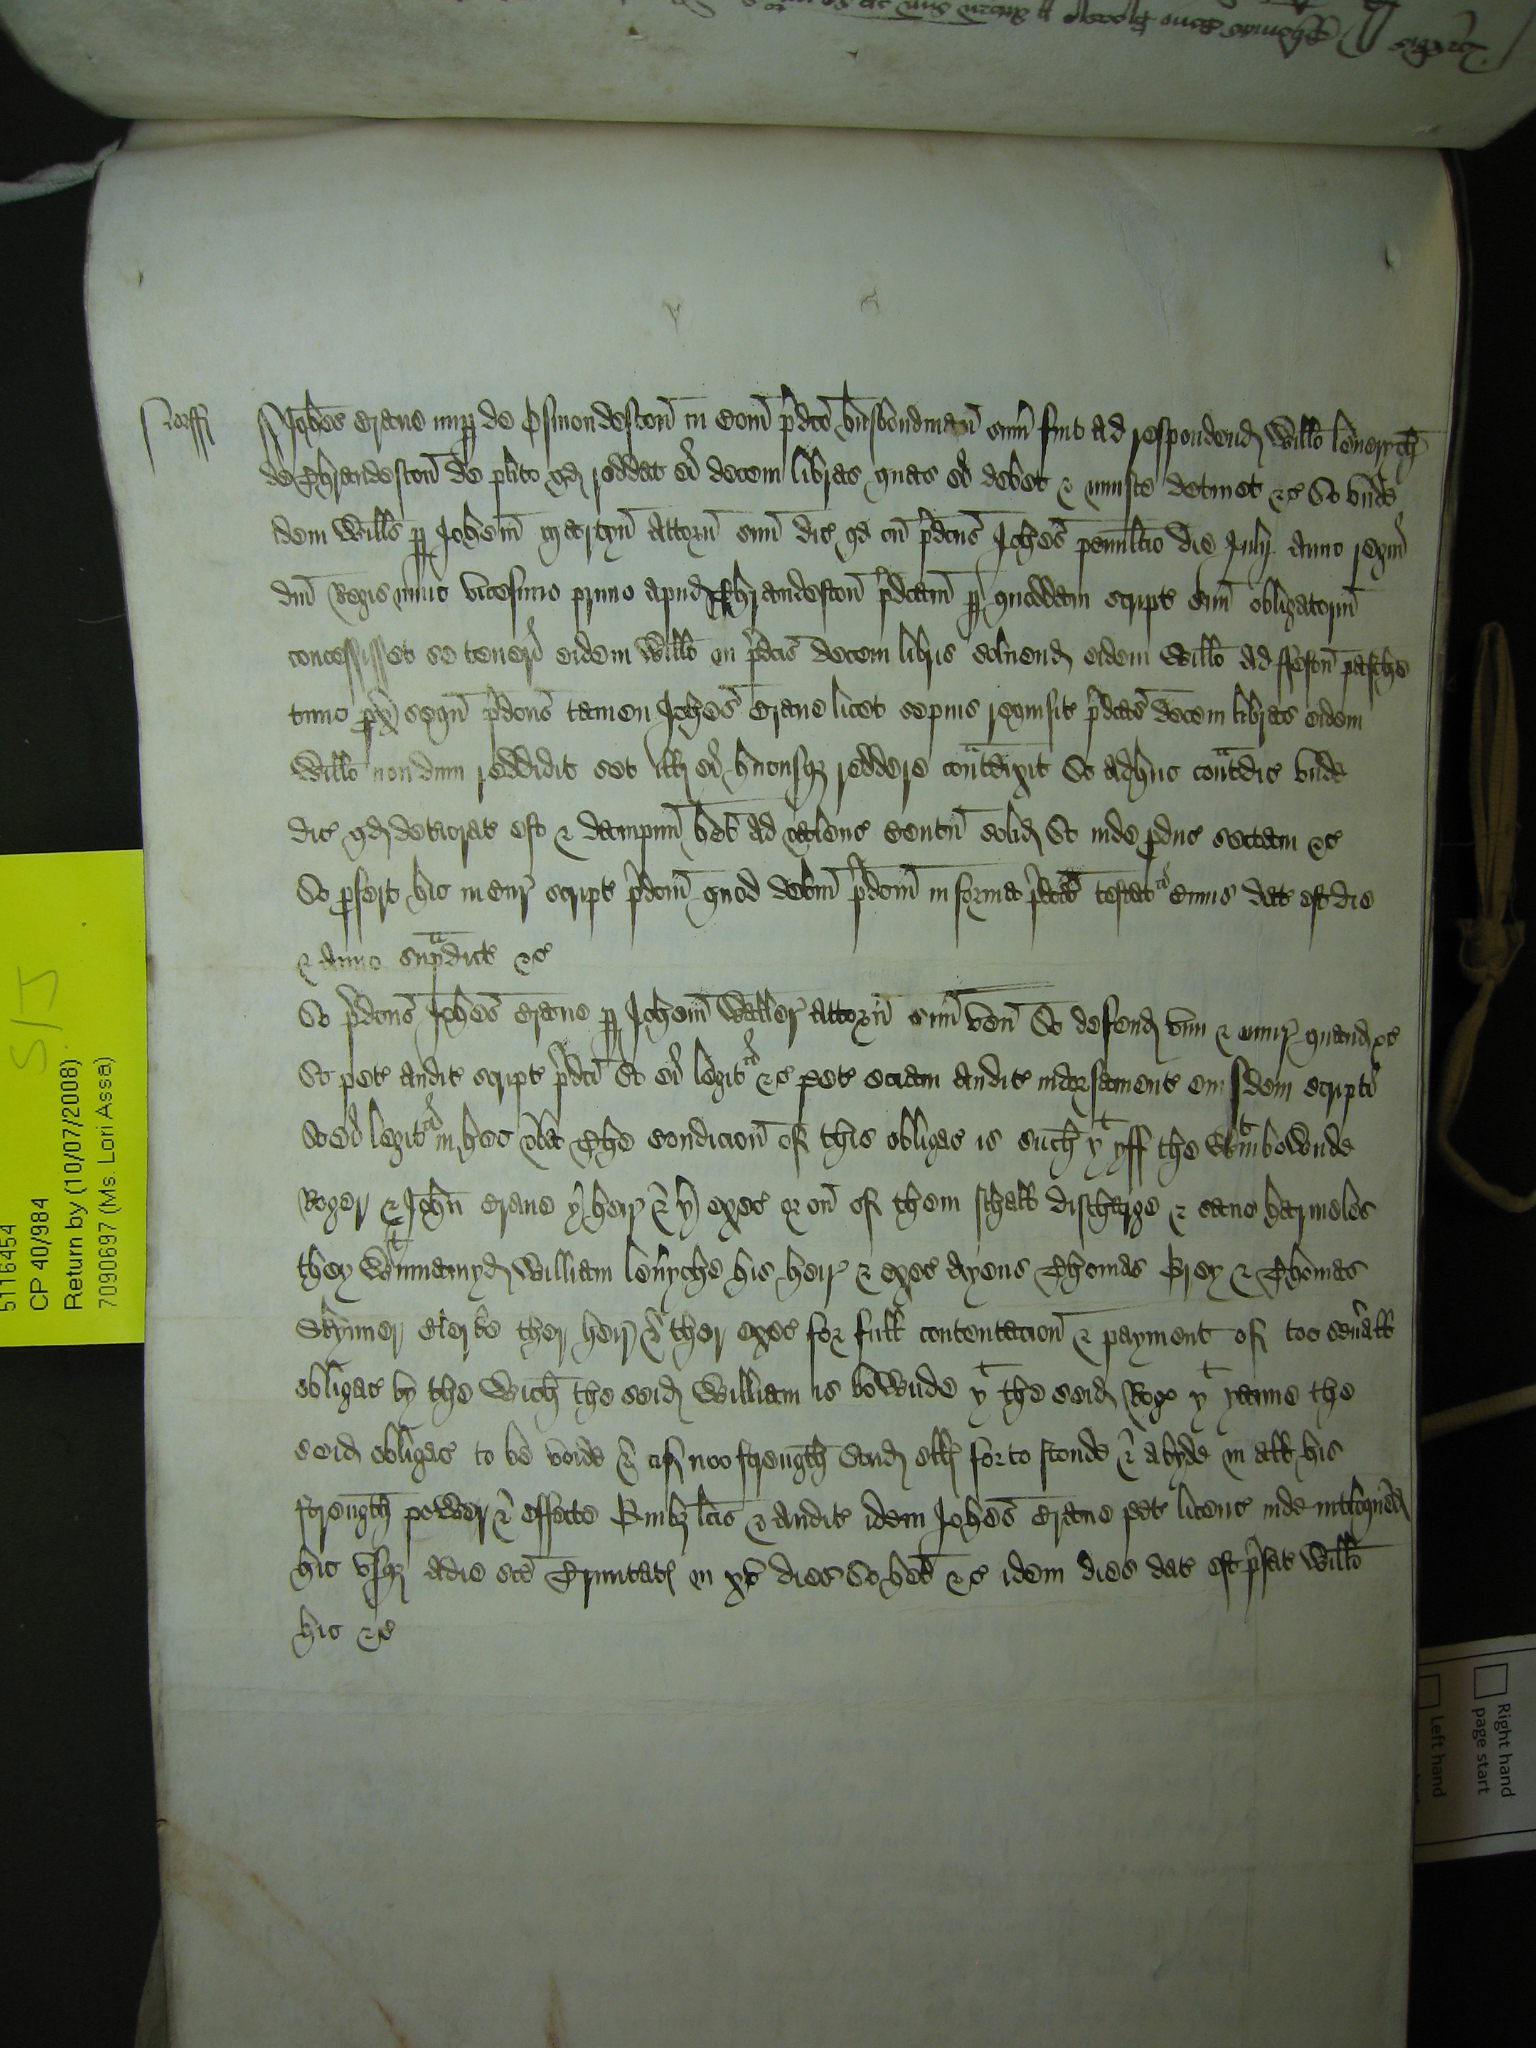 Norff
Joh̄es Crane nup de Osmondeston̄ in Com̄ p̄dc̄o husbondman̄ sum̄ fuit ad respondend Willo lenerych
de Thrandeston̄ de pl̄ito qd reddat ei decem libras quas ei debet & iniuste detinet &c Et unde
idem Will̄s p Joh̄em martyn̄ Attorn̄ suū dic qd cū p̄dcūs Joh̄es penultīo die Julij anno regni
dn̄i Regis nunc vicesimo primo apud Thrandeston̄ p̄dcam p quoddam script suū obligatoriū
concessisset se teneri eidem Willo in p̄dcīs decem libris solvend eidem Willo ad ffestū pasche
tunc px̄ seqū p̄dcūs tamen Joh̄es Crane licet sepius requisit p̄dcās decem libras eidem
Willo nondum reddidit set ill ei hucusq reddere cont̄dixit Et adhuc cont̄dic unde
dic qd deteriorat est & dampnū het ad valenc Centū solid Et inde pduc sectam &c
Et pfert hic in Cur script p̄dcm̄ quod debm̄ p̄dcm̄ in forma p̄dca testat Cuius dat est die
& Anno sup̄dict &c
Et p̄dcūs Joh̄es Crane p Joh̄em Waller Attorn̄ suū ven̄ Et defend vim & iniur quand &c
Et pet audit script p̄dc̄i Et ei legit &c pet eciam audit indorsament eiusdem scripti
Et ei legit in hec vba The condicion̄ of this obligac is such yt yff the wtinbownde
Roger & John̄ Crane yr heir & yr exec or on̄ of them schall discharge & save harmeles
they wtinnamyd William lenyche his heir & exec ayens Thomas Brey & Thomas
Skynner clerke ther heir & ther exec for full contentacion̄ & payment of too seuall
obligac by the wich the seid William is bownde wt the seid Rog yt yanne the
seid obligac to be voide & of noo strength And ell for to stonde & abyde in all his
strength power & effecte Quibz lc̄is & audit idem Joh̄es Crane pet licenc inde int̄loquendi
hic usq a die sc̄e Trinitat in xv dies Et het &c idem dies dat est p̄fat Willo
hic &c
5116454
CP 40/984
Return by (10/07/2008)
7090697 (Ms. Lori Assa)
S/J
Right hand
page start
Left hand